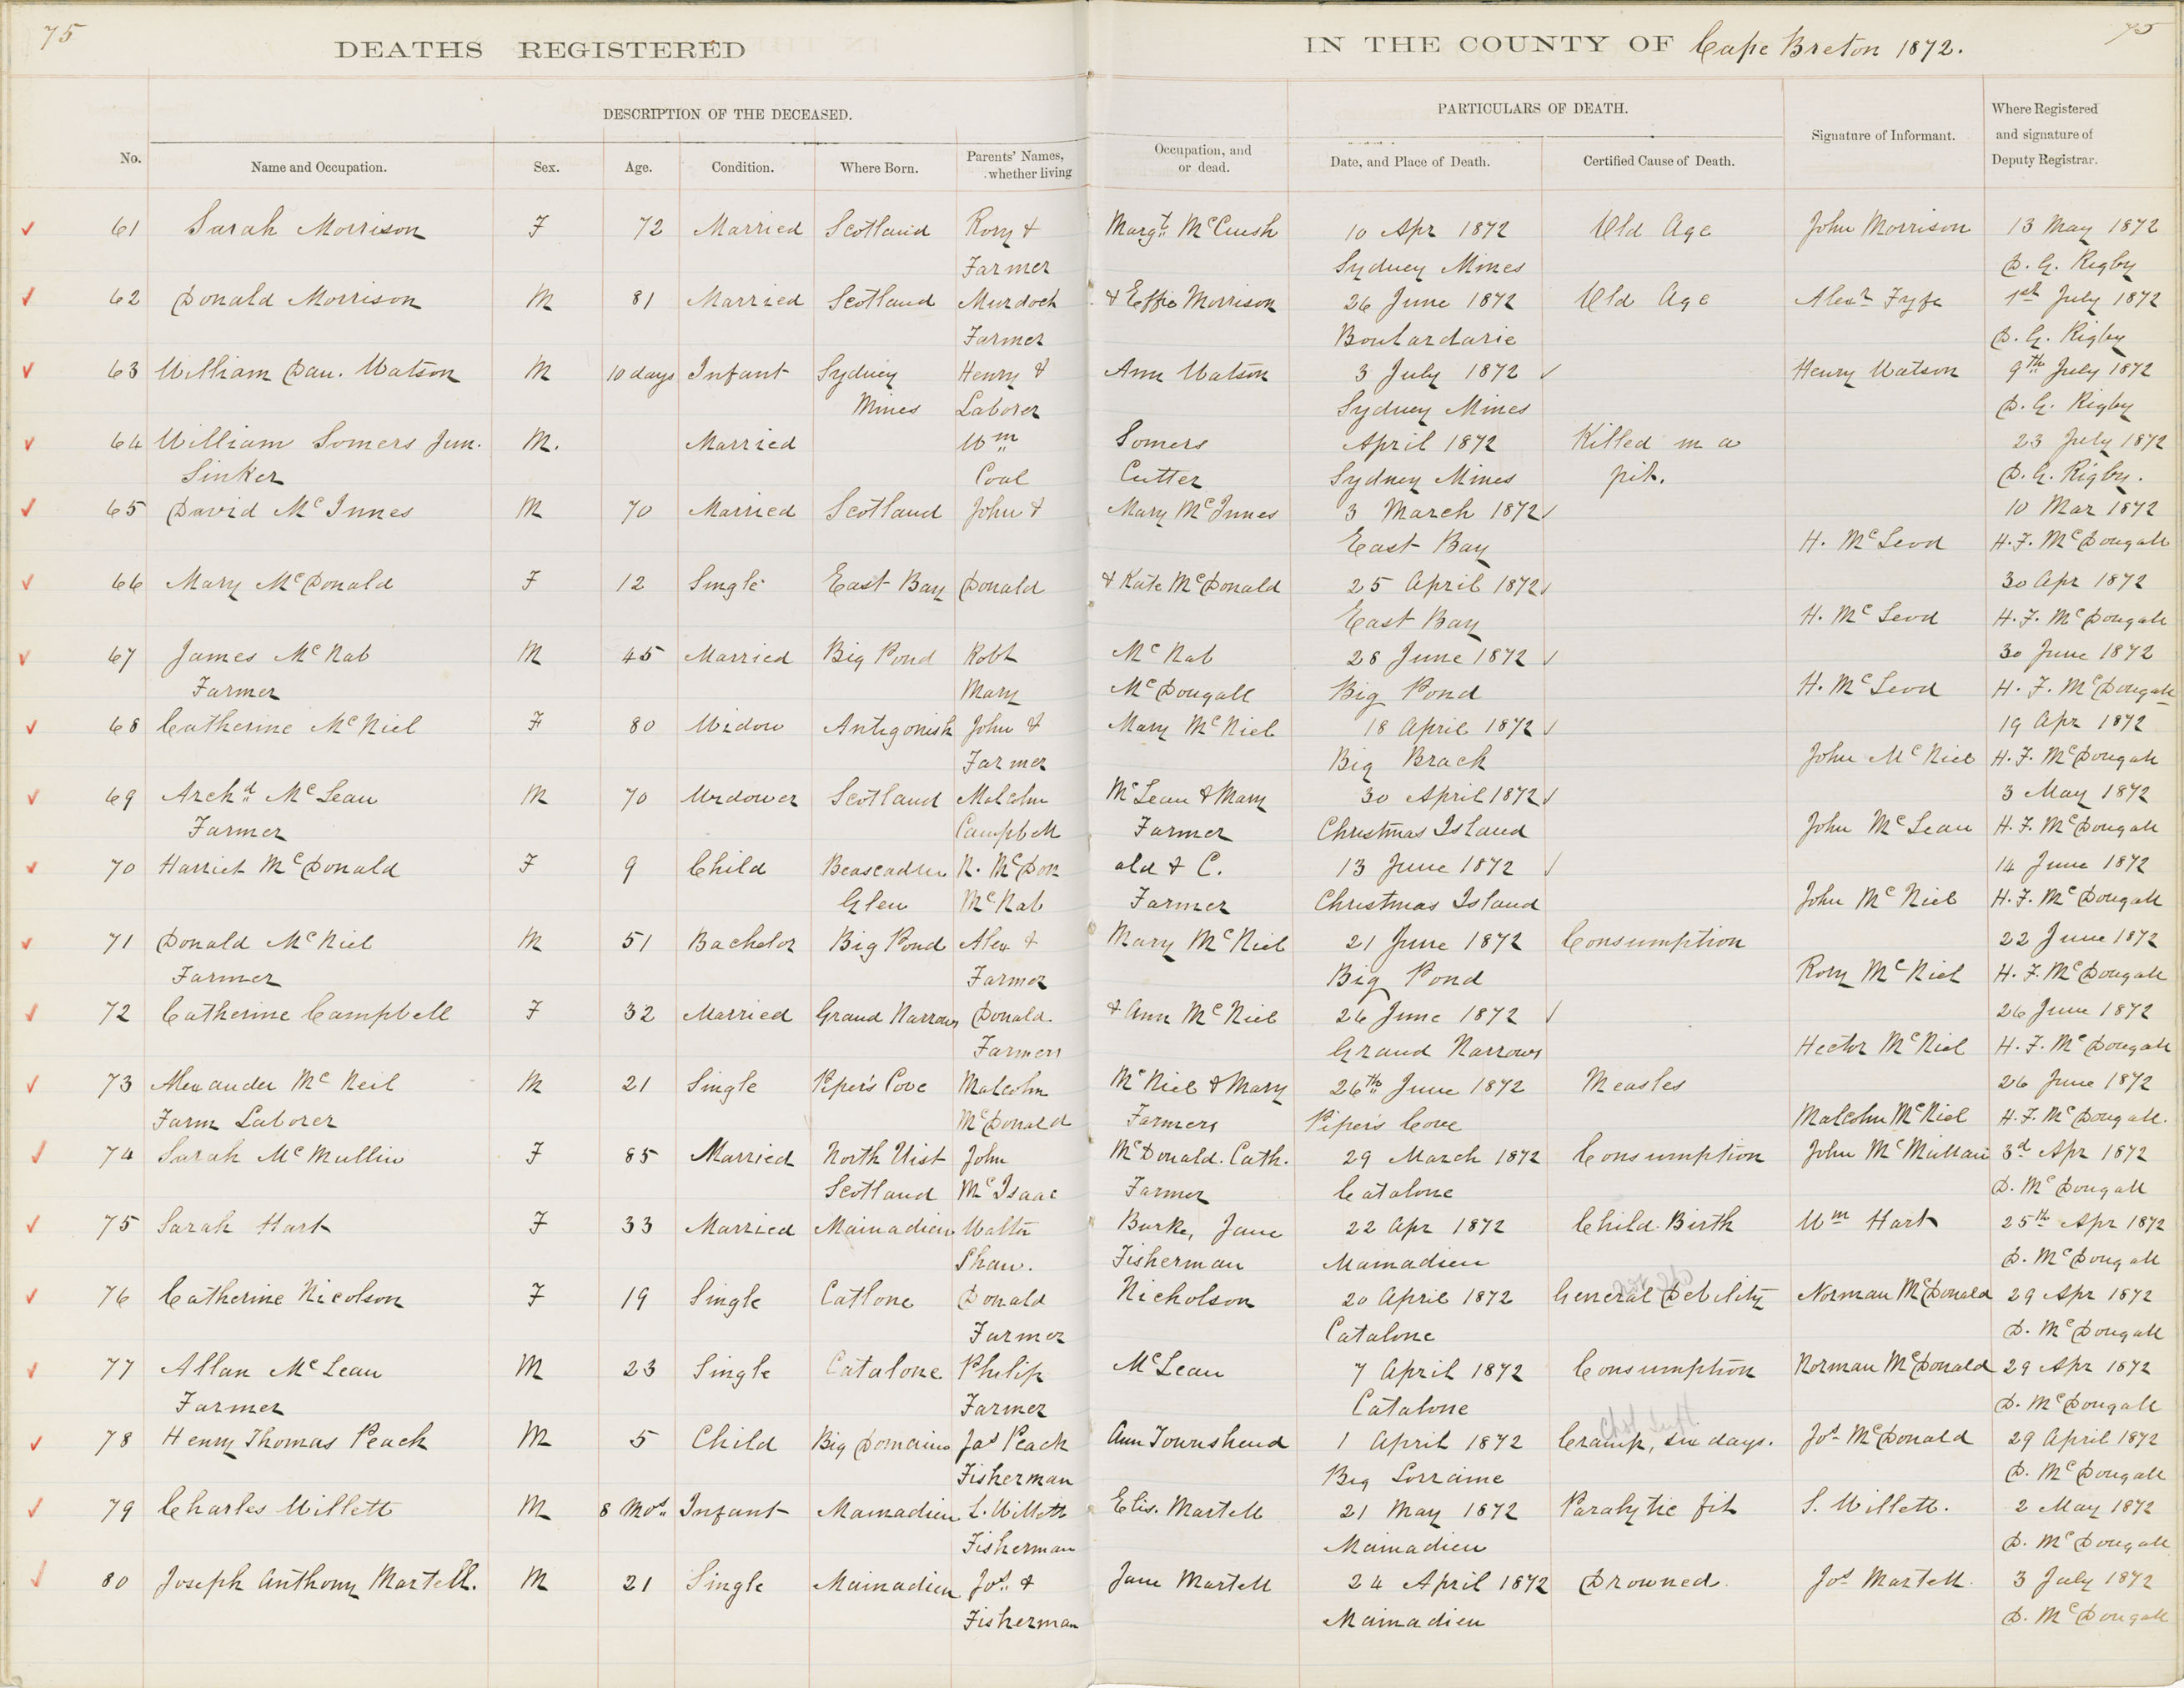 75
75
DEATHS REGISTERED IN THE COUNTY OF Cape Breton 1872.
DESCRIPTION OF THE DECEASED. PARTICULARS OF DEATH.
No. Name and Occupation. Sex. Age. Condition. Where Born. Parents' Names, whether living Occupation, and or dead. Date, and Place of Death. Certified Cause of Death. Signature of Informant. Where Registered and signature of Deputy Registrar.
61 Sarah Morrison F 72 Married Scotland Rory & Margt. McCuish 10 Apr 1872 Old Age John Morrison 13 May 1872
Farmer Sydney Mines D. G. Rigby
62 Donald Morrison M 81 Married Scotland Murdoch & Effie Morrison 26 June 1872 Old Age Alexr Fyfe 1st July 1872
Farmer Boulardarie D. G. Rigby
63 William Dan. Watson M 10 days Infant Sydney Henry & Ann Watson 3 July 1872 Henry Watson 9th July 1872
Mines Laborer Sydney Mines D. G. Rigby
64 William Somers Jun. M. Married Wm Somers April 1872 Killed in a 23 July 1872
Sinker Coal Cutter Sydney Mines pit. D. G. Rigby.
65 David McInnes M 70 Married Scotland John & Mary McInnes 3 March 1872 10 Mar 1872
East Bay H. McLeod H. F. McDougall
66 Mary McDonald F 12 Single East Bay Donald & Kate McDonald 25 April 1872 30 Apr 1872
East Bay H. McLeod H. F. McDougall
67 James McNab M 45 Married Big Pond Robt McNab 28 June 1872 30 June 1872
Farmer Mary McDougall Big Pond H. McLeod H. F. McDougall
68 Catherine McNiel F 80 Widow Antigonish John & Mary McNiel 18 April 1872 19 Apr 1872
Farmer Big Brach John McNiel H. F. McDougall
69 Archd. McLean M 70 Widower Scotland Malcolm McLean & Mary 30 April 1872 3 May 1872
Farmer Campbell Farmer Christmas Island John McLean H. F. McDougall
70 Harriet McDonald F 9 Child R. McDon ald & C. 13 June 1872 14 June 1872
Glen McNab Farmer Christmas Island John McNiel H. F. McDougall
71 Donald McNiel M 51 Bachelor Big Pond Alex & Mary McNiel 21 June 1872 Consumption 22 June 1872
Farmer Farmer Big Pond Rory McNiel H. F. McDougall
72 Catherine Campbell F 32 Married Grand Narrows Donald & Ann McNiel 26 June 1872 26 June 1872
Farmers Grand Narrows Hector McNiel H. F. McDougall
73 Alexander McNeil M 21 Single Piper's Cove Malcolm McNiel & Mary 26th June 1872 Measles 26 June 1872
Farm Laborer McDonald Farmers Piper's Cove Malcolm McNiel H. F. McDougall.
74 Sarah McMullin F 85 Married North Uist John McDonald. Cath. 29 March 1872 Consumption John McMullan 3d Apr 1872
Scotland McIsaac Farmer Catalone D. McDougall
75 Sarah Hart F 33 Married Mainadieu Walter Burke, Jane 22 Apr 1872 Child Birth Wm Hart 25th Apr 1872
Shaw. Fisherman Mainadieu D. McDougall
76 Catherine Nicolson F 19 Single Catlone Donald Nicholson 20 April 1872 General Debility Norman McDonald 29 Apr 1872
Farmer Catalone D. McDougall
77 Allan McLean M 23 Single Catalone Philip McLean 7 April 1872 Consumption Norman McDonald 29 Apr 1872
Farmer Farmer Catalone D. McDougall
78 Henry Thomas Peach M 5 Child Big Lorraine Jas Peach Ann Townshend 1 April 1872 Cramp, six days. Jos McDonald 29 April 1872
Fisherman Big Lorraine D. McDougall
79 Charles Willett M 8 Mos. Infant Mainadieu L. Willett Elis. Martell 21 May 1872 Paralytic fit S. Willett. 2 May 1872
Fisherman Mainadieu D. McDougall
80 Joseph Anthony Martell. M 21 Single Mainadieu Jos. & Jane Martell 24 April 1872 Drowned. Jos Martell. 3 July 1872
Fisherman Mainadieu D. McDougall